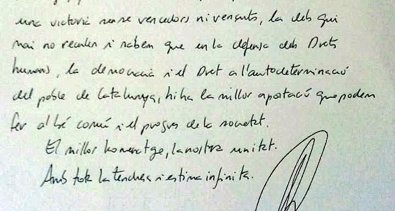 una victòria sense vencedors ni vençuts, la dels qui
mai no reculen i saben que en la defensa dels Drets
humans, la democràcia i el Dret a l'autodeterminació
del poble de Catalunya, hi ha la millor aportació que podem
fer al bé comú i el progrés de la societat.
El millor homenatge, la nostra unitat.
Amb tota la tendresa i estima infinita.